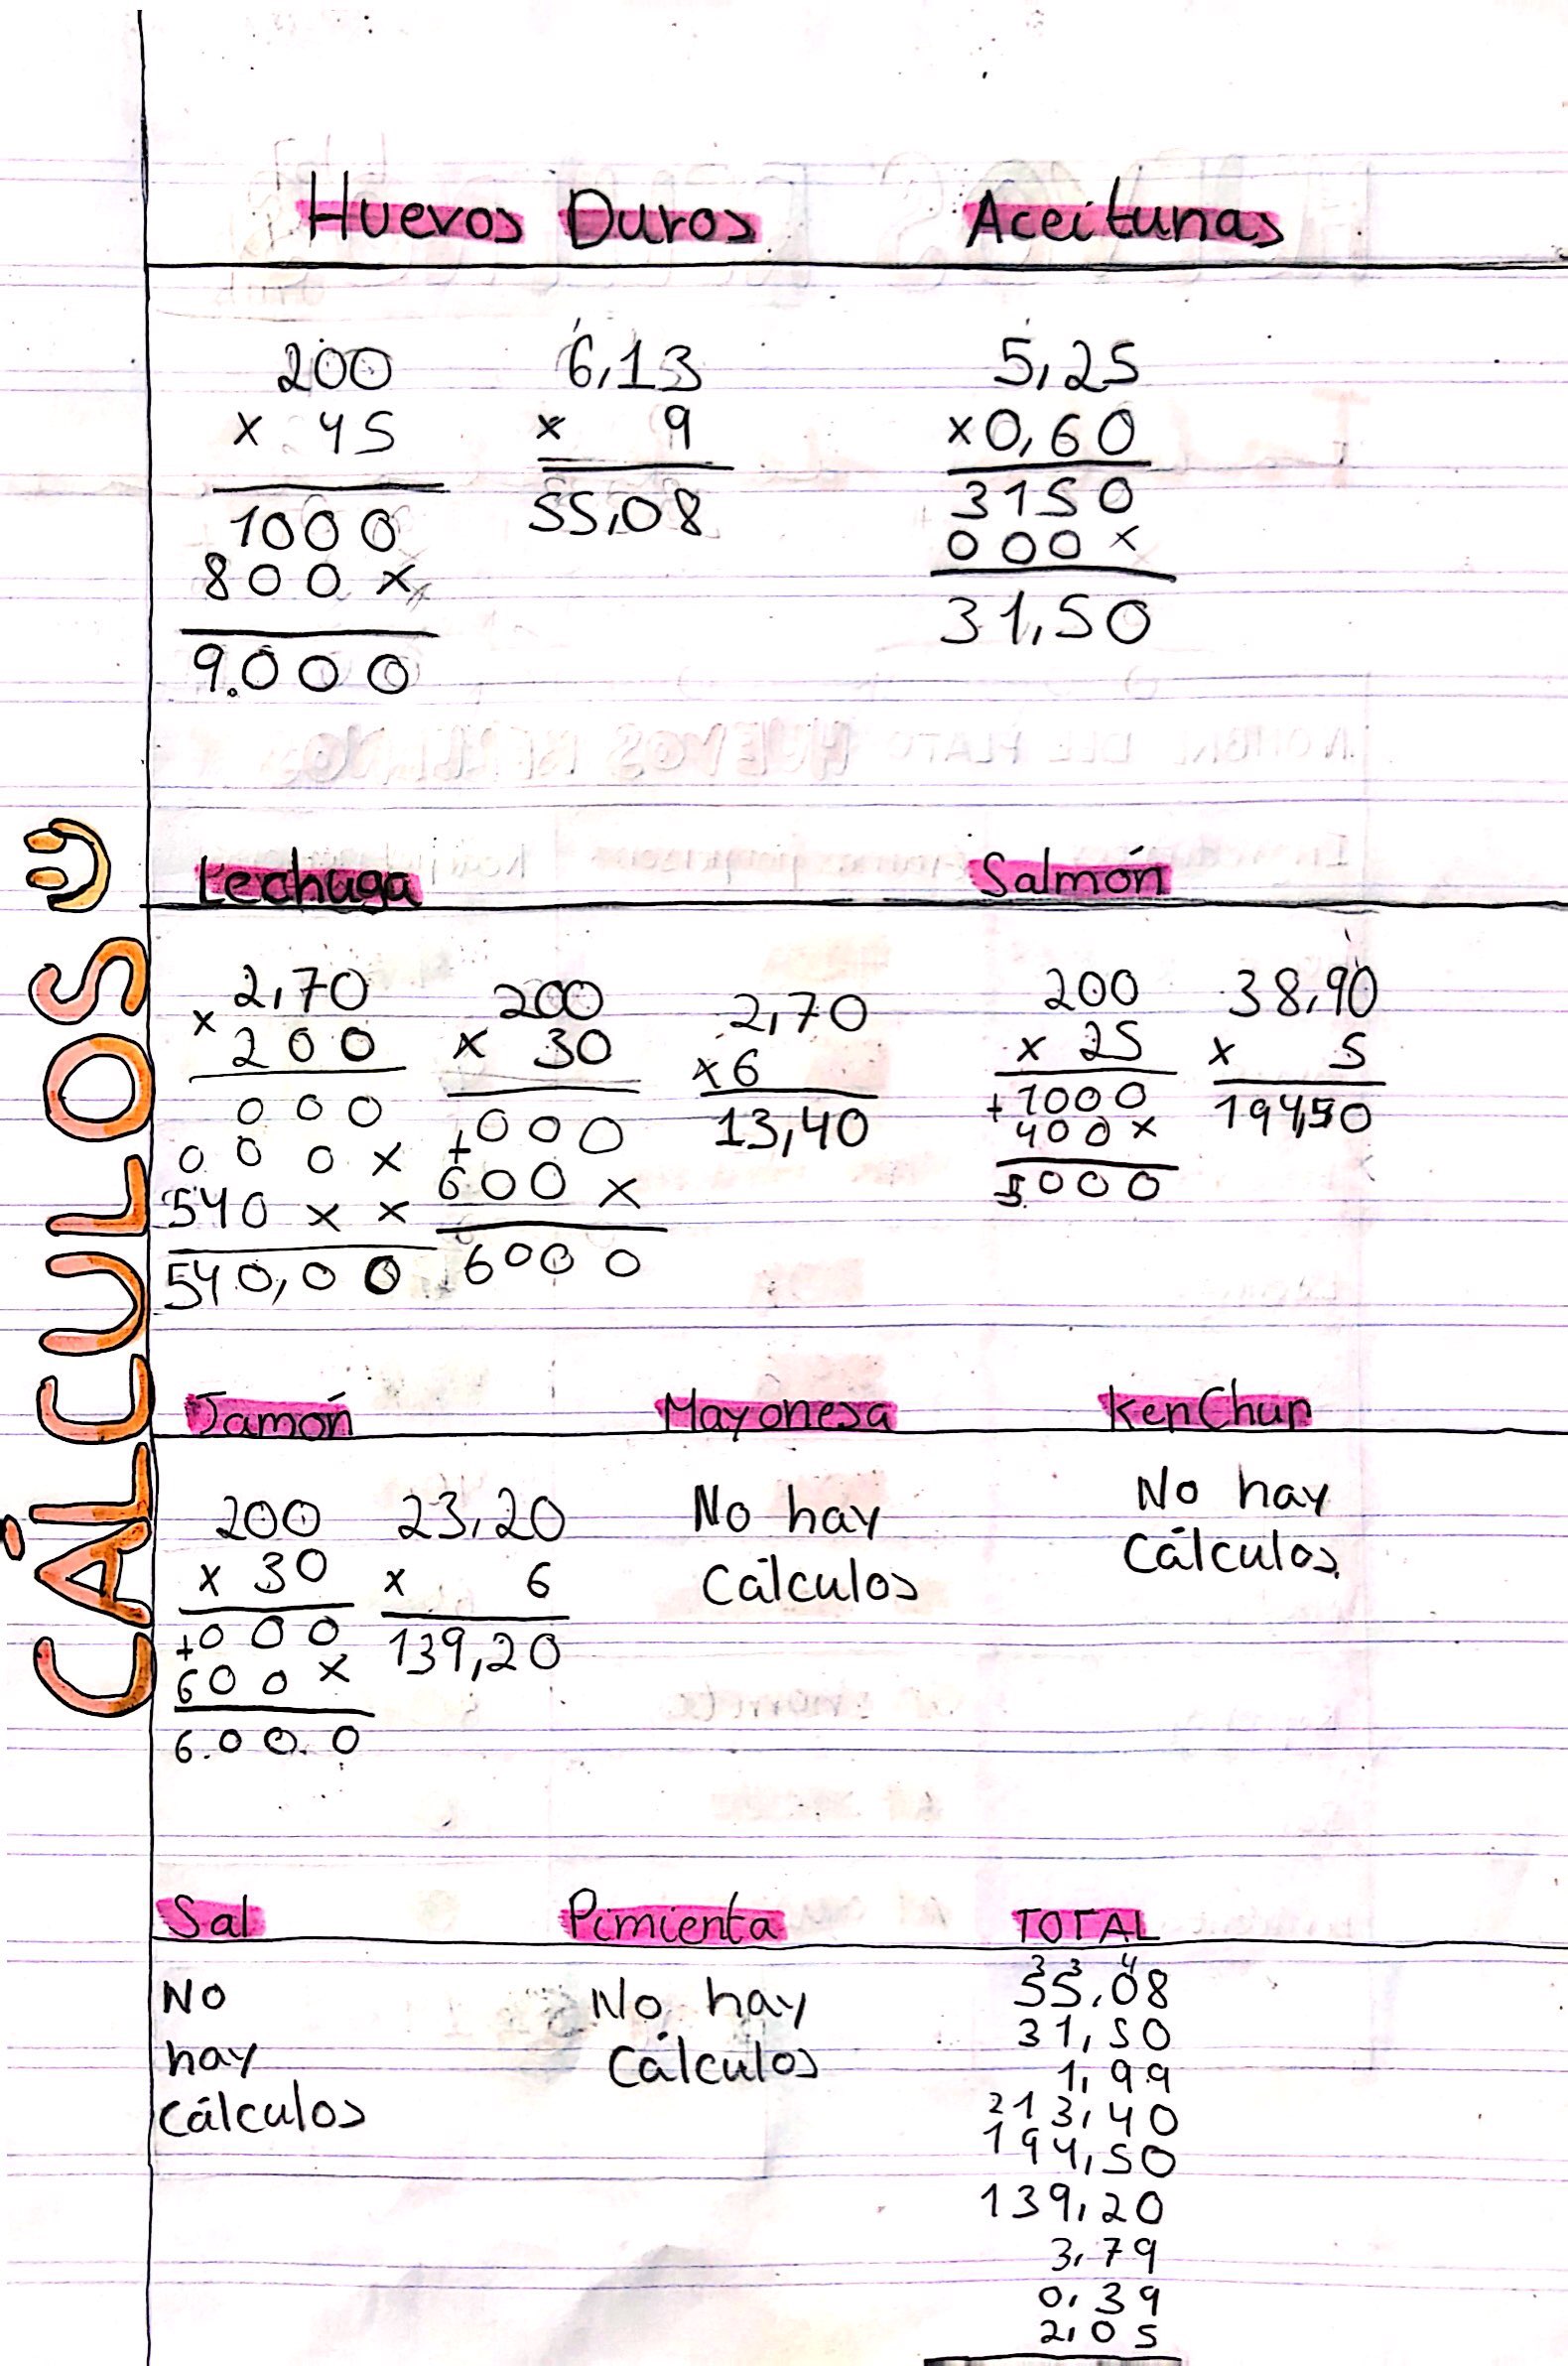 CÁLCULOS
Huevos Duros
200
x 45
1000
800 x
9.000
6,13
x 9
55,08
Aceitunas
5,25
x0,60
3150
000 x
31,50
Lechuga
2,70
x
200
000
000 x
540 x x
540,00
200
x 30
+000
600 x
6000
2,70
x6
13,40
Salmón
200
x 25
+1000
400 x
5000
38,90
x 5
194,50
Jamón
200
x 30
+000
600 x
6.000
23,20
x 6
139,20
Mayonesa
No hay
Cálculos
KenChup
No hay
Cálculos.
Sal
No
hay
Cálculos
Pimienta
No hay
Cálculos
TOTAL
3 3 4
55,08
31,50
1,99
2 13,40
194,50
139,20
3,79
0,39
2,05